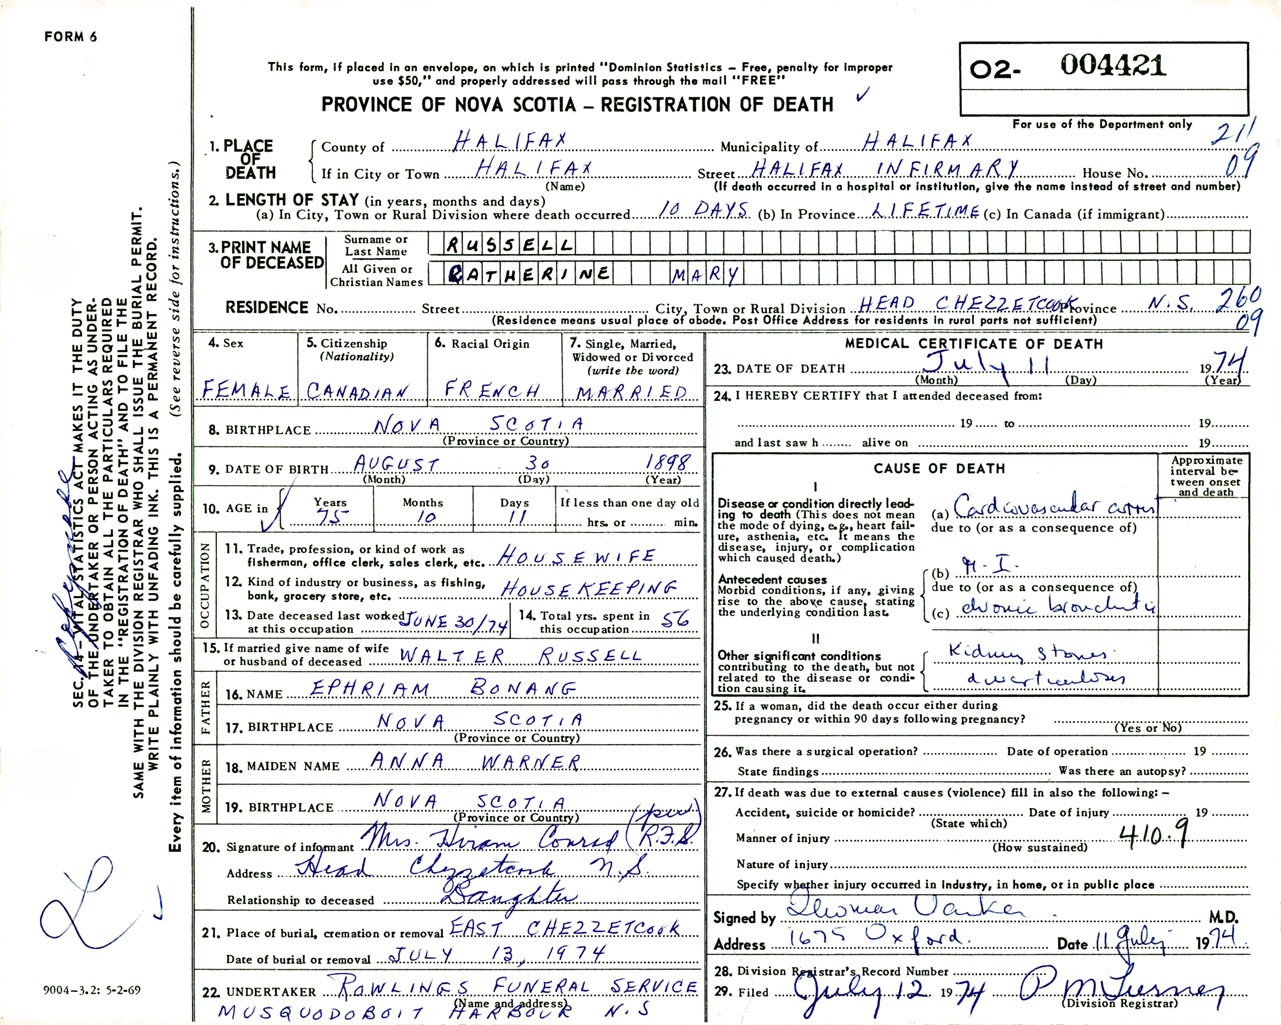 FORM 6
This form, if placed in an envelope, on which is printed "Dominion Statistics – Free, penalty for improper
use $50," and properly addressed will pass through the mail "FREE"
PROVINCE OF NOVA SCOTIA – REGISTRATION OF DEATH ✓
O2- 004421
For use of the Department only
211
09
1. PLACE OF DEATH
County of HALIFAX Municipality of HALIFAX
If in City or Town HALIFAX Street HALIFAX INFIRMARY House No.
(Name) (If death occurred in a hospital or institution, give the name instead of street and number)
2. LENGTH OF STAY (in years, months and days)
(a) In City, Town or Rural Division where death occurred 10 DAYS (b) In Province LIFETIME (c) In Canada (if immigrant)
3. PRINT NAME OF DECEASED
Surname or Last Name RUSSELL
All Given or Christian Names CATHERINE MARY
RESIDENCE No. Street City, Town or Rural Division HEAD CHEZZETCOOK Province N.S. 260
09
(Residence means usual place of abode. Post Office Address for residents in rural parts not sufficient)
4. Sex
FEMALE
5. Citizenship (Nationality)
CANADIAN
6. Racial Origin
FRENCH
7. Single, Married, Widowed or Divorced (write the word)
MARRIED
8. BIRTHPLACE NOVA SCOTIA
(Province or Country)
9. DATE OF BIRTH AUGUST 30 1898
(Month) (Day) (Year)
10. AGE in Years Months Days If less than one day old
75 10 11 hrs. or min.
OCCUPATION
11. Trade, profession, or kind of work as fisherman, office clerk, sales clerk, etc. HOUSEWIFE
12. Kind of industry or business, as fishing, bank, grocery store, etc. HOUSEKEEPING
13. Date deceased last worked at this occupation JUNE 30/74
14. Total yrs. spent in this occupation 56
15. If married give name of wife or husband of deceased WALTER RUSSELL
FATHER
16. NAME EPHRIAM BONANG
17. BIRTHPLACE NOVA SCOTIA
(Province or Country)
MOTHER
18. MAIDEN NAME ANNA WARNER
19. BIRTHPLACE NOVA SCOTIA
(Province or Country)
20. Signature of informant Mrs. Hiram Conrad (per R.F.S.)
Address Head Chezzetcook N.S.
Relationship to deceased Daughter
21. Place of burial, cremation or removal EAST CHEZZETCOOK
Date of burial or removal JULY 13, 1974
22. UNDERTAKER RAWLINGS FUNERAL SERVICE
(Name and address)
MUSQUODOBOIT HARBOUR N.S
MEDICAL CERTIFICATE OF DEATH
23. DATE OF DEATH July 11 1974
(Month) (Day) (Year)
24. I HEREBY CERTIFY that I attended deceased from:
19 to 19
and last saw h alive on 19
CAUSE OF DEATH
Approximate interval between onset and death
I
Disease or condition directly leading to death (This does not mean the mode of dying, e.g., heart failure, asthenia, etc. It means the disease, injury, or complication which caused death.)
(a) Cardiovascular arrest
due to (or as a consequence of)
Antecedent causes
Morbid conditions, if any, giving rise to the above cause, stating the underlying condition last.
(b) M.I.
due to (or as a consequence of)
(c) chronic bronchitis
II
Other significant conditions contributing to the death, but not related to the disease or condition causing it.
Kidney stones
diverticulosis
25. If a woman, did the death occur either during pregnancy or within 90 days following pregnancy?
(Yes or No)
26. Was there a surgical operation? Date of operation 19
State findings Was there an autopsy?
27. If death was due to external causes (violence) fill in also the following: –
Accident, suicide or homicide? Date of injury 19
(State which)
Manner of injury 410.9
(How sustained)
Nature of injury
Specify whether injury occurred in industry, in home, or in public place
Signed by Thomas M.D.
Address 1675 Oxford. Date 11 July 1974
28. Division Registrar's Record Number
29. Filed July 12 1974
(Division Registrar)
SEC. 14 – VITAL STATISTICS ACT MAKES IT THE DUTY
OF THE UNDERTAKER OR PERSON ACTING AS UNDER-
TAKER TO OBTAIN ALL THE PARTICULARS REQUIRED
IN THE "REGISTRATION OF DEATH" AND TO FILE THE
SAME WITH THE DIVISION REGISTRAR WHO SHALL ISSUE THE BURIAL PERMIT.
WRITE PLAINLY WITH UNFADING INK. THIS IS A PERMANENT RECORD.
Every item of information should be carefully supplied. (See reverse side for instructions.)
9004-3.2: 5-2-69